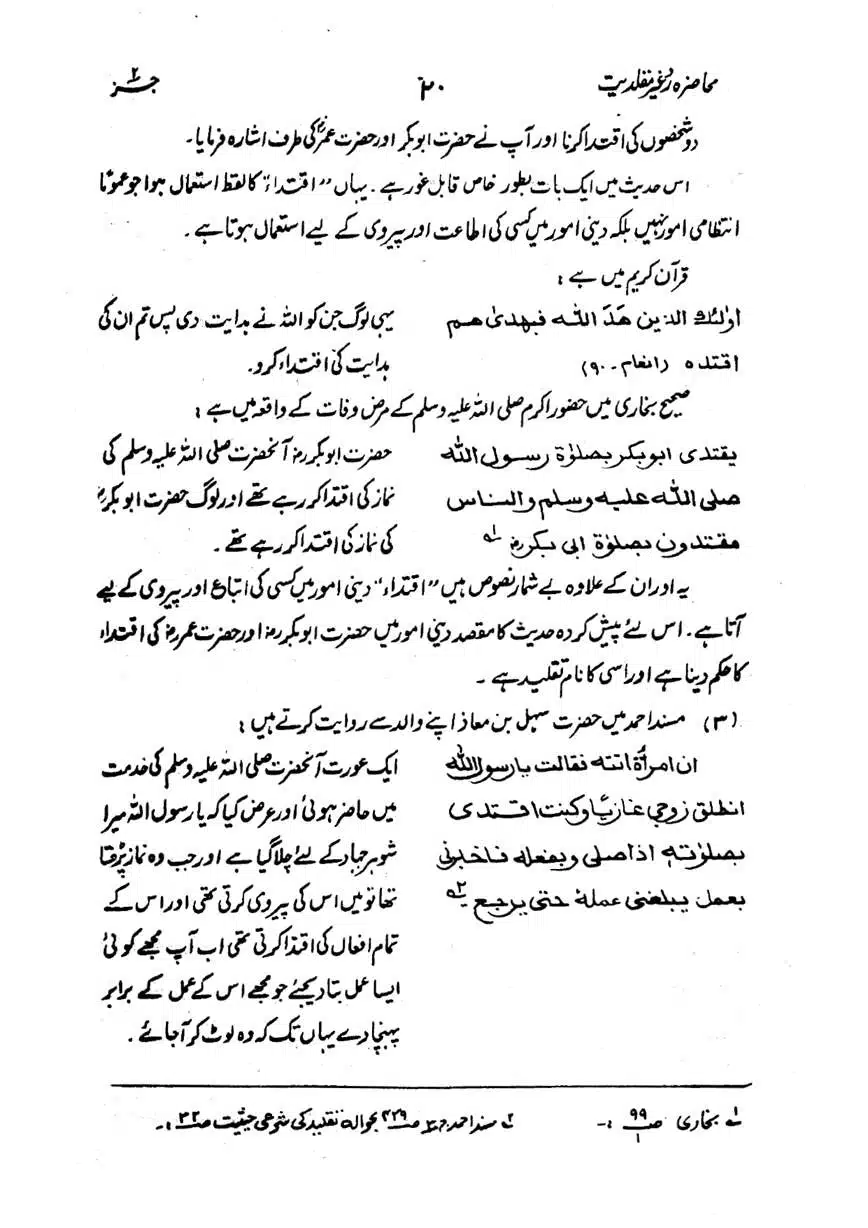 محاضرہ ردّ غیر مقلدیت ۲۰ جز ۲
دو شخصوں کی اقتدا کرنا اور آپ نے حضرت ابوبکر اور حضرت عمرؓ کی طرف اشارہ فرمایا۔
اس حدیث میں ایک بات بطور خاص قابل غور ہے۔ یہاں ”اقتداء“ کا لفظ استعمال ہوا جو عموماً
انتظامی امور نہیں بلکہ دینی امور میں کسی کی اطاعت اور پیروی کے لیے استعمال ہوتا ہے۔
قرآن کریم میں ہے :
اولٰئك الذین هَدَ اللّٰه فبهدىٰ هم یہی لوگ جن کو اللہ نے ہدایت دی پس تم ان کی
اقتده (انعام۔ ۹۰) ہدایت کی اقتداء کرو۔
صحیح بخاری میں حضور اکرم صلی اللہ علیہ وسلم کے مرض وفات کے واقعہ میں ہے :
یقتدی ابوبکر بصلوٰة رسول اللّٰه حضرت ابوبکررضـ آنحضرت صلی اللہ علیہ وسلم کی
صلی اللّٰه علیه وسلم والناس نماز کی اقتدا کر رہے تھے اور لوگ حضرت ابوبکررضـ
مقتدون بصلوٰة ابی بکررضـ ؎۱ کی نماز کی اقتدا کر رہے تھے۔
یہ اور ان کے علاوہ بے شمار نصوص ہیں ”اقتداء“ دینی امور میں کسی کی اتباع اور پیروی کے لیے
آتا ہے۔ اس لئے پیش کردہ حدیث کا مقصد دینی امور میں حضرت ابوبکررضـ اور حضرت عمررضـ کی اقتداء
کا حکم دینا ہے اور اسی کا نام تقلید ہے۔
(۳) مسند احمد میں حضرت سہل بن معاذ اپنے والد سے روایت کرتے ہیں :
ان امرأة اتته فقالت یا رسول اللّٰه ایک عورت آنحضرت صلی اللہ علیہ وسلم کی خدمت
انطلق زوجی غازیًا وکنت اقتدی میں حاضر ہوئی اور عرض کیا کہ یا رسول اللہ میرا
بصلوٰته اذا صلی وبفعله فاخبرنی شوہر جہاد کے لئے چلا گیا ہے اور جب وہ نماز پڑھتا
بعمل یبلغنی عمله حتی یرجع ؎۲ تھا تو میں اس کی پیروی کرتی تھی اور اس کے
تمام افعال کی اقتدا کرتی تھی اب آپ مجھے کوئی
ایسا عمل بتا دیجئے جو مجھے اس کے عمل کے برابر
پہنچا دے یہاں تک کہ وہ لوٹ کر آجائے۔
؎۱ بخاری صـ ۹۹/۱ :- ؎۲ مسند احمد صـ ۴۳۹ بحوالہ تقلید کی شرعی حیثیت صـ ۳۲ :-